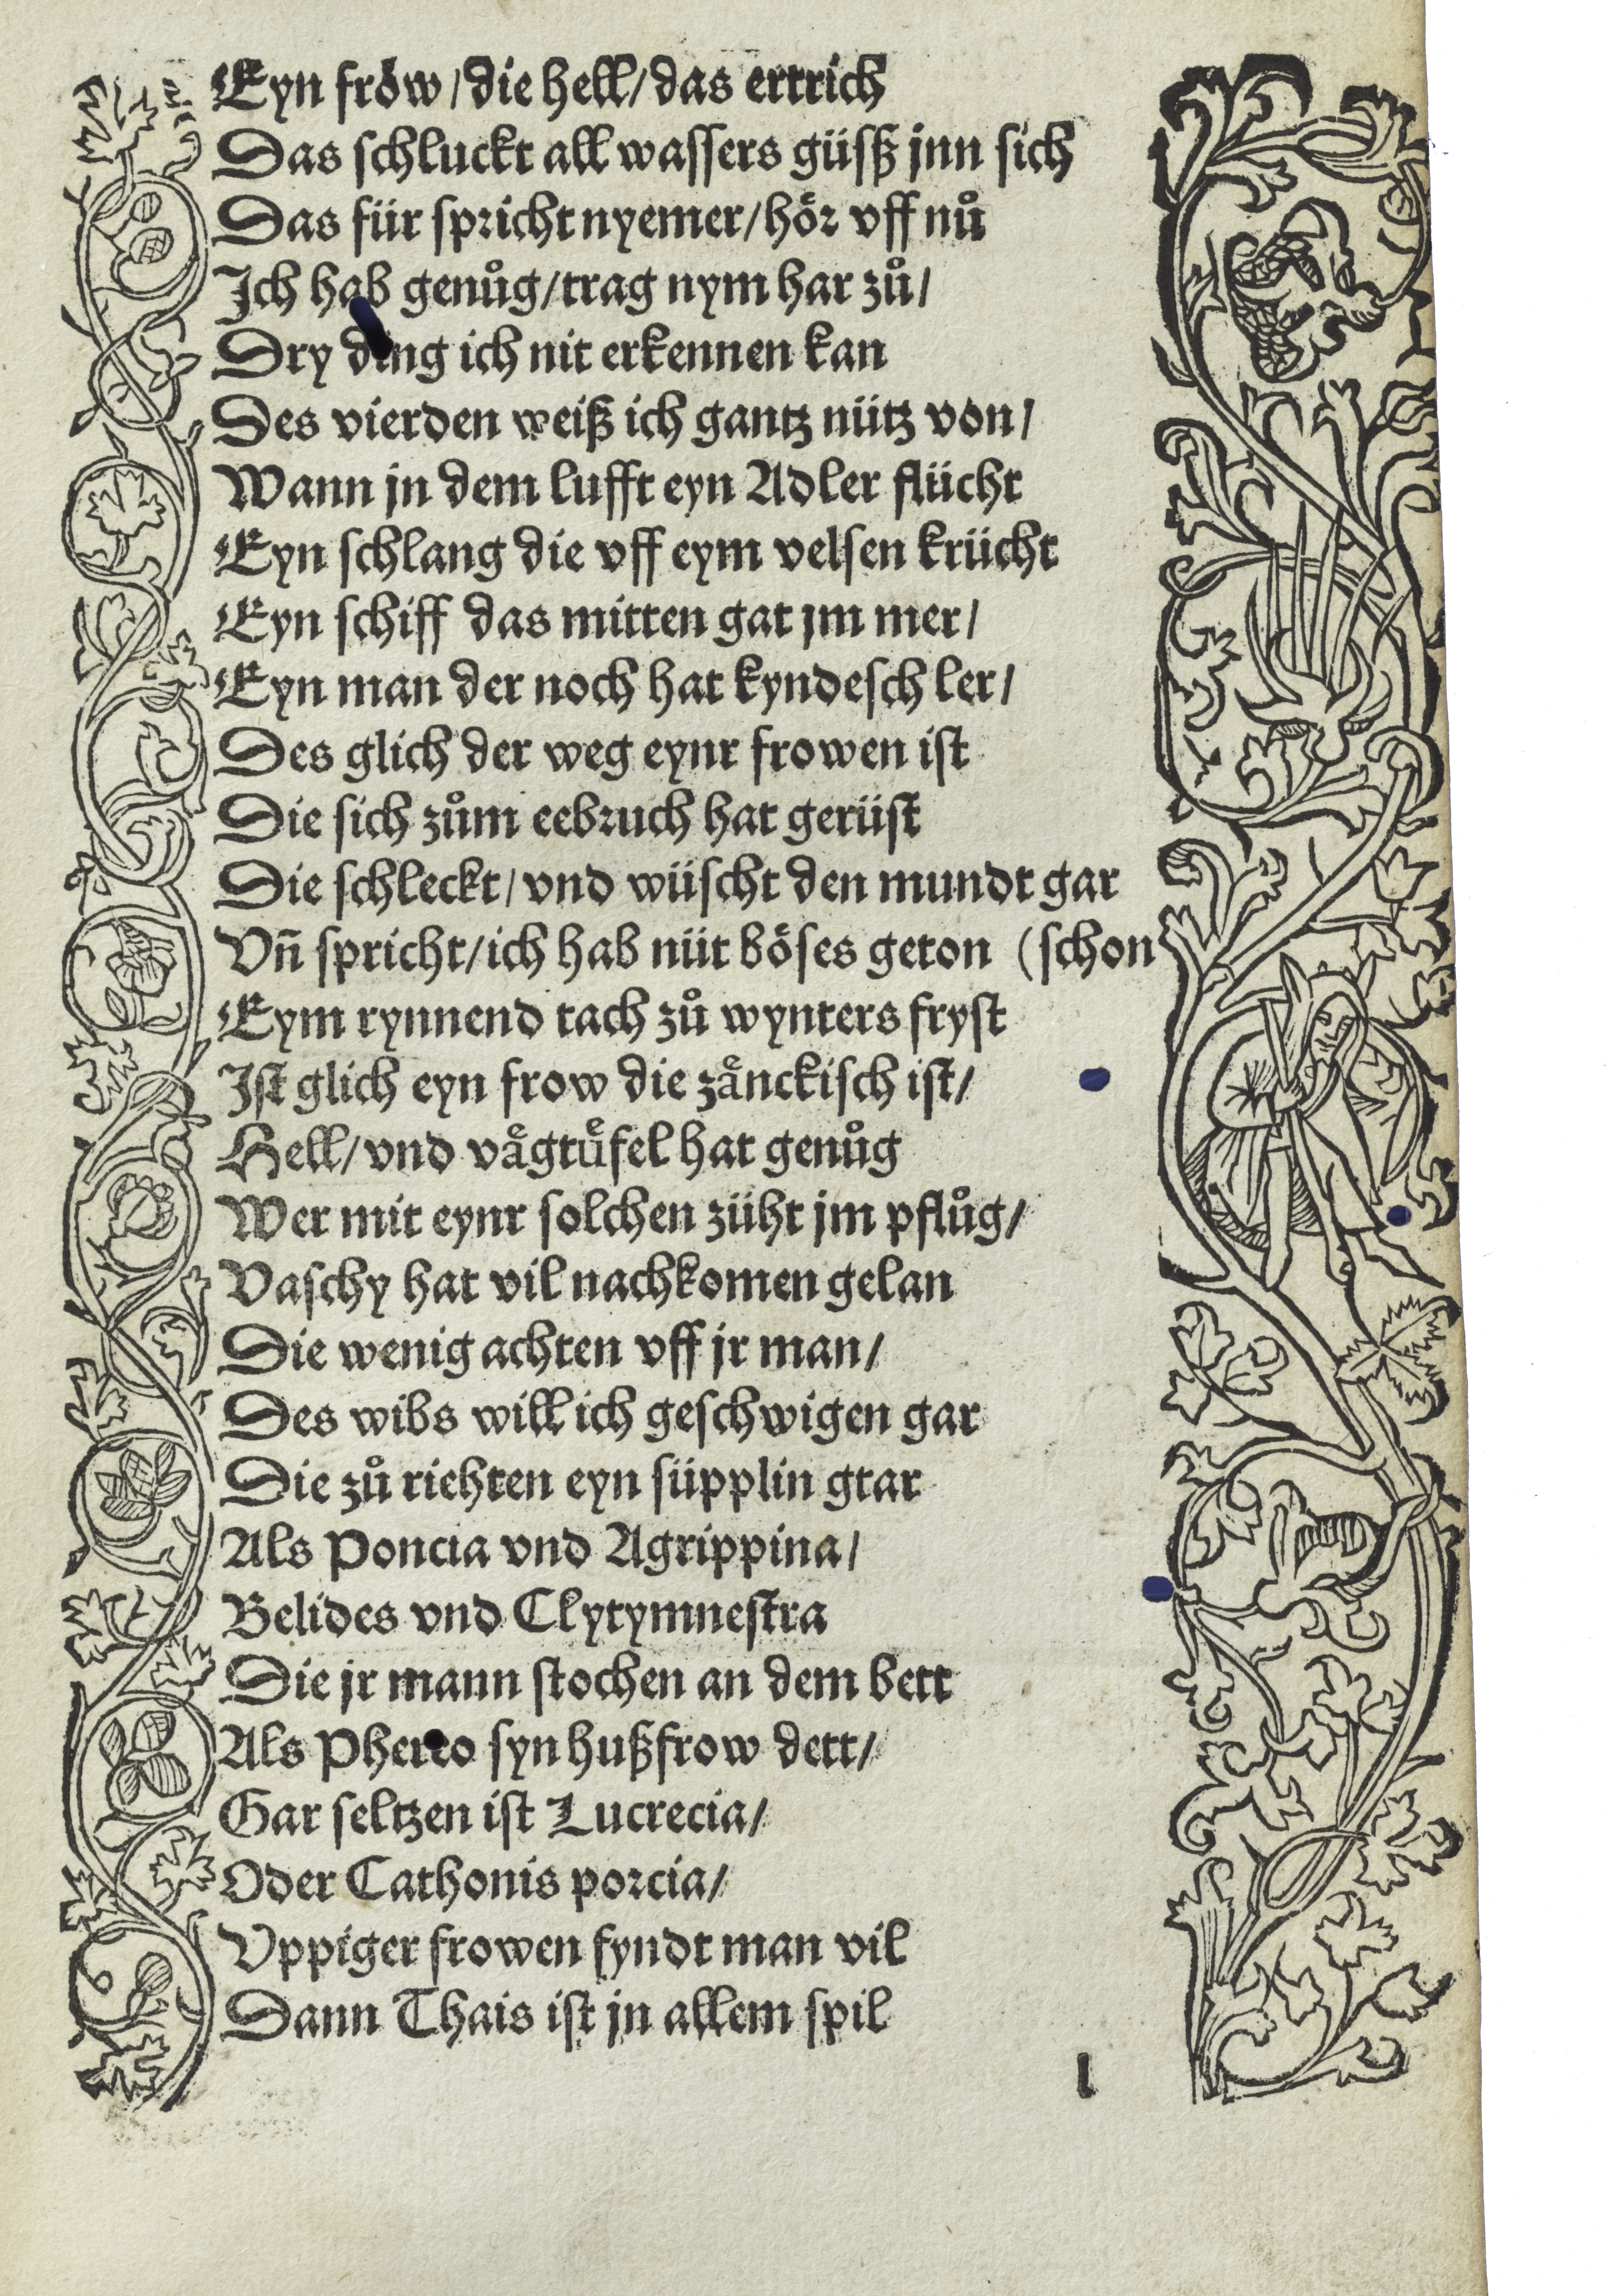 Eyn frów / die hell / das ertrich
Das schluckt all wassers güsß jnn sich
Das für spricht nyemer / hoͤr vff nuͦ
Ich hab genuͦg / trag nym har zuͦ /
Dry ding ich nit erkennen kan
Des vierden weiß ich gantz nütz von /
Wann jn dem lufft eyn Adler flücht
Eyn schlang die vff eym velsen krücht
Eyn schiff das mitten gat jm mer /
Eyn man der noch hat kyndesch ler /
Des glich der weg eynr frowen ist
Die sich zuͦm eebruch hat gerüst
Die schleckt / vnd wüscht den mundt gar
Vn̄ spricht / ich hab nüt boͤses geton (schon
Eym rynnend tach zuͦ wynters fryst
Ist glich eyn frow die zaͤnckisch ist /
Hell / vnd vaͤgtuͤfel hat genuͦg
Wer mit eynr solchen züht jm pfluͦg /
Vaschy hat vil nachkomen gelan
Die wenig achten vff jr man /
Des wibs will ich geschwigen gar
Die zuͦ riehten eyn süpplin gtar
Als Poncia vnd Agrippina /
Belides vnd Clytymnestra
Die jr mann stochen an dem bett
Als syn hußfrow dett /
Gar seltzen ist Lucrecia /
Oder Cathonis porcia /
Vppiger frowen fyndt man vil
Dann Thais ist jn allem spil
l